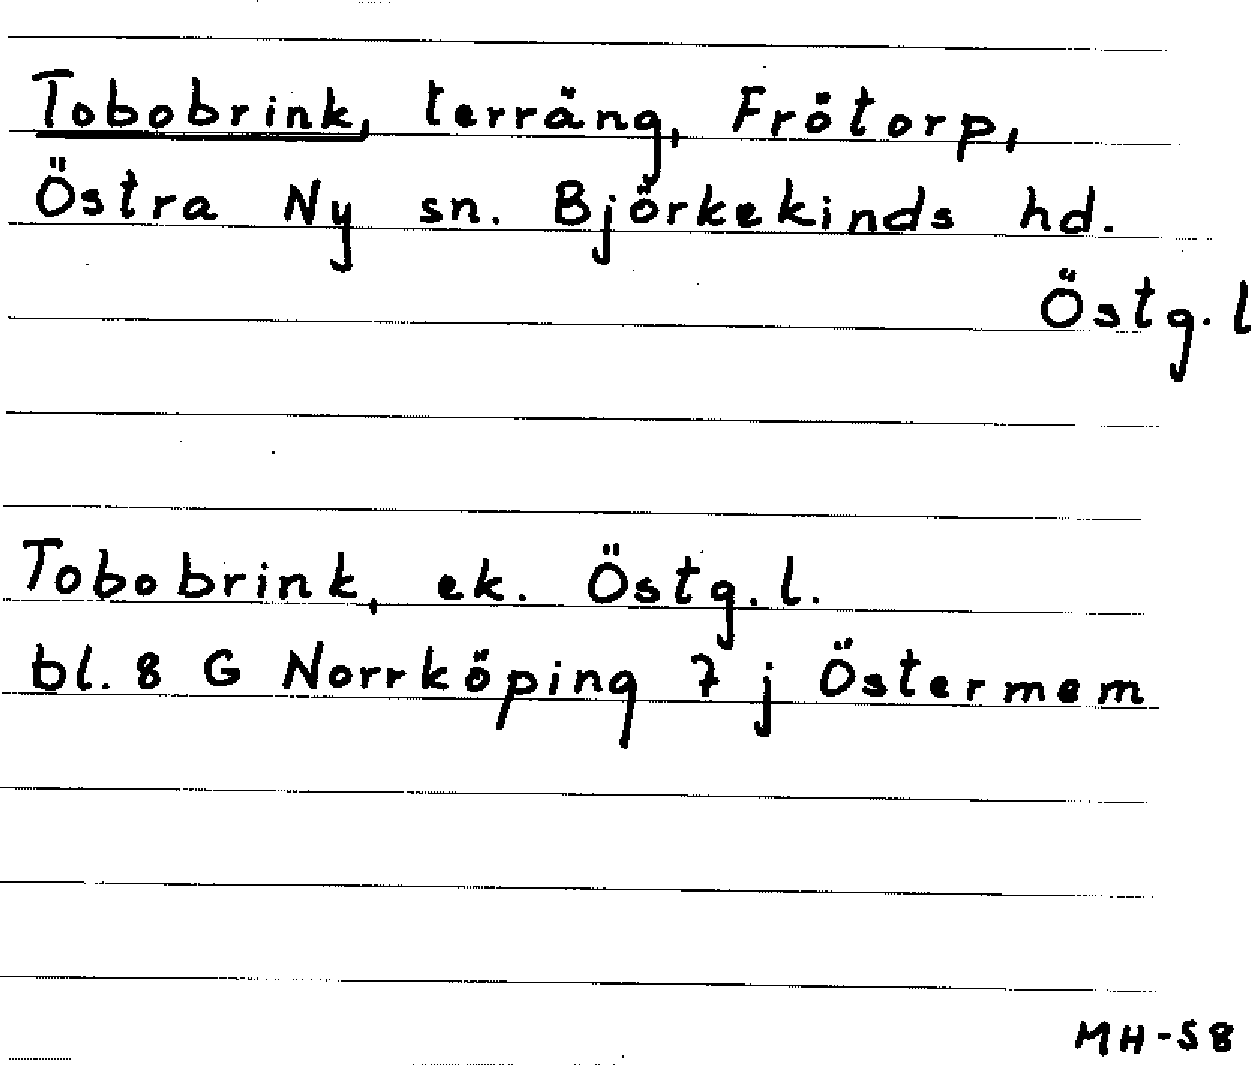 Tobobrink, terräng, Frötorp,
Östra Ny sn. Björkekinds hd.
Östg. l
Tobobrink, ek. Östg. l.
bl. 8 G Norrköping 7 j Östermem
MH-58